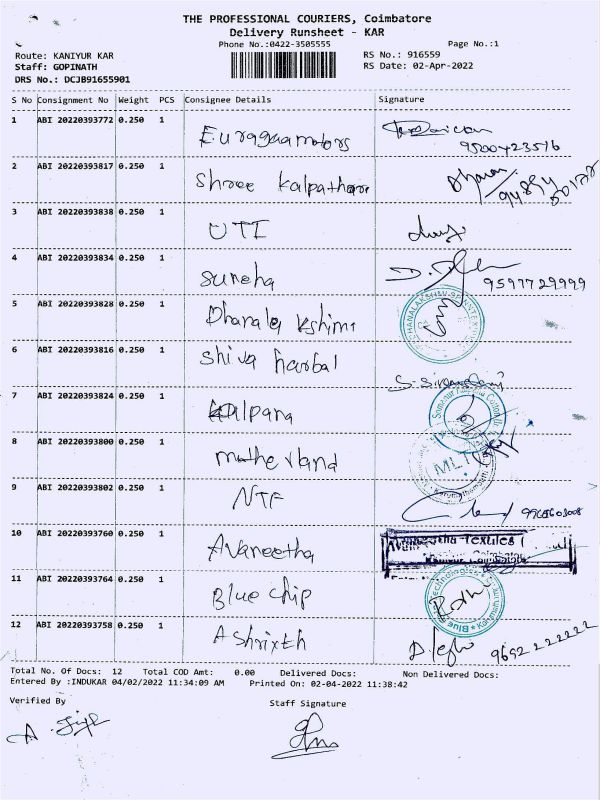 THE PROFESSIONAL COURIERS, Coimbatore
Delivery Runsheet - KAR
Phone No.:0422-3505555 Page No.:1
Route: KANIYUR KAR RS No.: 916559
Staff: GOPINATH RS Date: 02-Apr-2022
DRS No.: DCJB91655901
S No Consignment No Weight PCS Consignee Details Signature
1 ABI 20220393772 0.250 1 Euragaamotors
2 ABI 20220393817 0.250 1 Shree kalpatharu
3 ABI 20220393838 0.250 1 UTI
4 ABI 20220393834 0.250 1 Suneha 9597729999
5 ABI 20220393828 0.250 1 Dhanalakshimi
6 ABI 20220393816 0.250 1 Shiva harbal
7 ABI 20220393824 0.250 1 Kalpana
8 ABI 20220393800 0.250 1 motherland MLT
9 ABI 20220393802 0.250 1 NTF
10 ABI 20220393760 0.250 1 Avaneetha
11 ABI 20220393764 0.250 1 Blue chip
12 ABI 20220393758 0.250 1 Ashrixth 9652222222
Total No. Of Docs: 12 Total COD Amt: 0.00 Delivered Docs: Non Delivered Docs:
Entered By :INDUKAR 04/02/2022 11:34:09 AM Printed On: 02-04-2022 11:38:42
Verified By Staff Signature